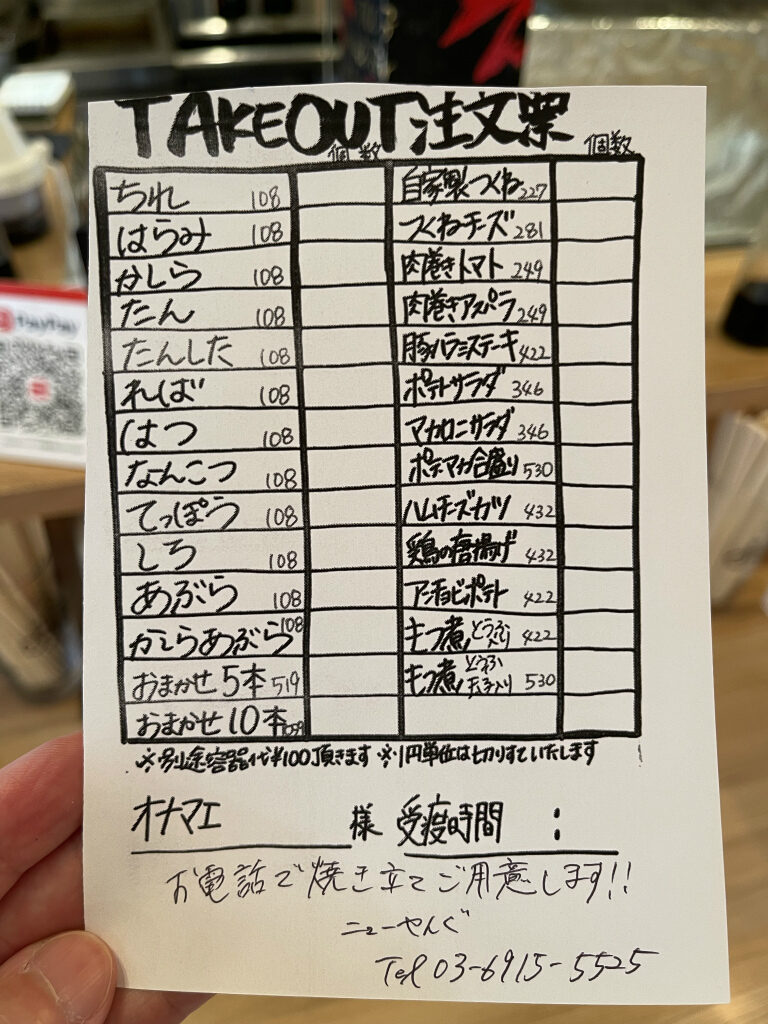 TAKEOUT注文票
個数 個数
ちれ 108 自家製つくね 227
はらみ 108 つくねチーズ 281
かしら 108 肉巻きトマト 249
たん 108 肉巻きアスパラ 249
たんした 108 豚ハラミステーキ 422
ればー 108 ポテトサラダ 346
はつ 108 マカロニサラダ 346
なんこつ 108 ポテマカ合盛り 530
てっぽう 108 ハムチーズカツ 432
しろ 108 鶏の唐揚げ 432
あぶら 108 アンチョビポテト 422
かしらあぶら 108 もつ煮 とうふ入り 422
おまかせ 5本 519 もつ煮 とうふ玉子入り 530
おまかせ 10本
※別途容器代¥100頂きます ※1円単位は切りすていたします
オナマエ 様 受渡時間 :
お電話で焼き立てご用意します!!
ニューやんぐ
Tel 03-6915-5525
PayPay